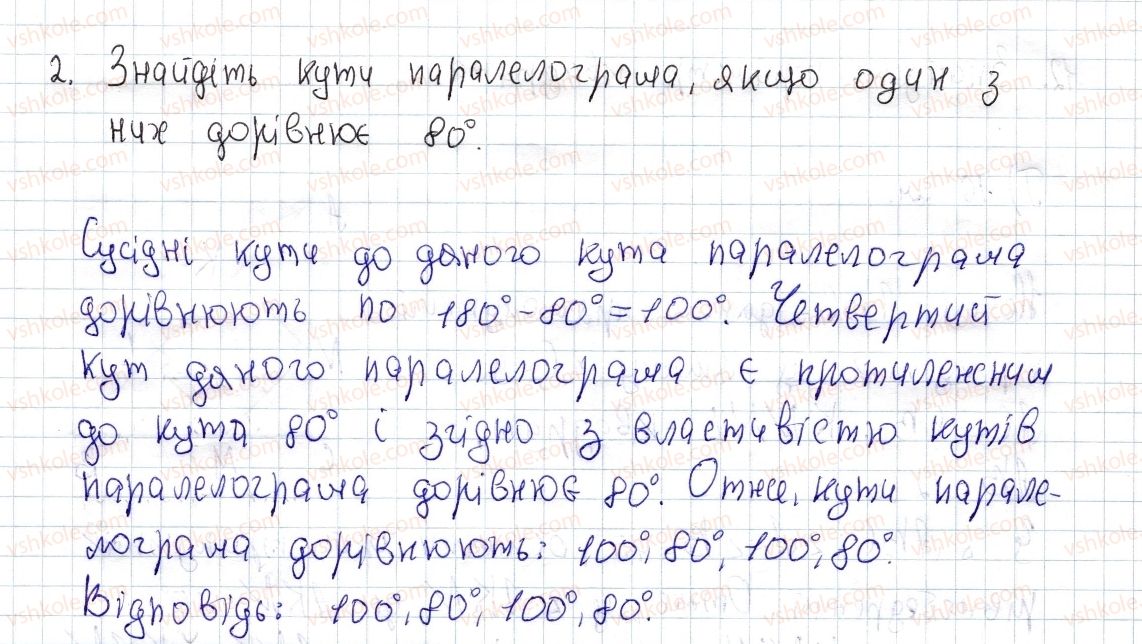 2. Знайдіть кути паралелограма, якщо один з
них дорівнює 80°.
Сусідні кути до даного кута паралелограма
дорівнюють по 180° - 80° = 100°. Четвертий
кут даного паралелограма є протилежним
до кута 80° і згідно з властивістю кутів
паралелограма дорівнює 80°. Отже, кути парале-
лограма дорівнюють: 100°, 80°, 100°, 80°.
Відповідь: 100°, 80°, 100°, 80°.
vshkole.com